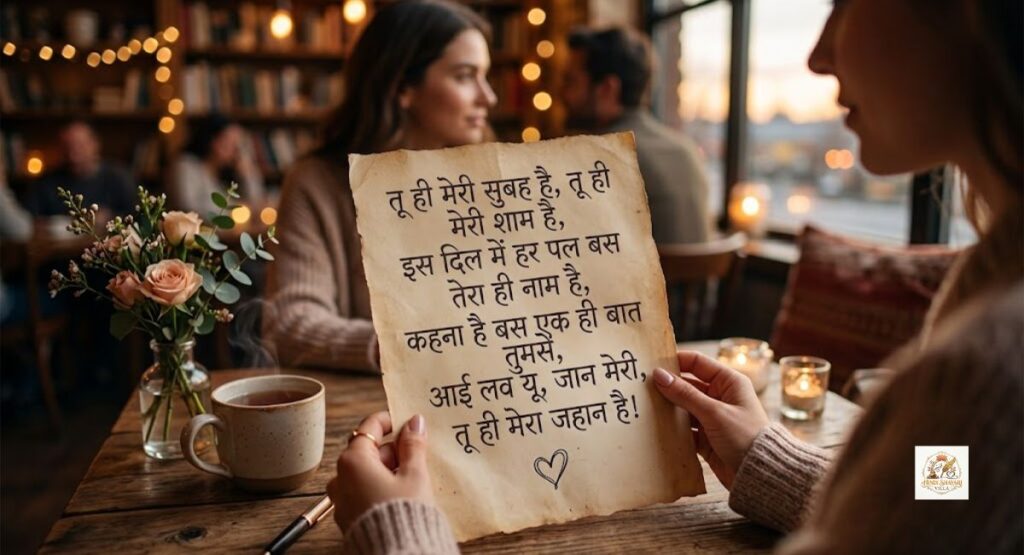 तू ही मेरी सुबह है, तू ही
मेरी शाम है,
इस दिल में हर पल बस
तेरा ही नाम है,
कहना है बस एक ही बात
तुमसे,
आई लव यू, जान मेरी,
तू ही मेरा जहान है!
VILLA